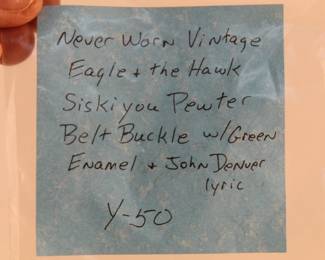 Never Worn Vintage
Eagle + the Hawk
Siskiyou Pewter
Belt Buckle w/Green
Enamel + John Denver
lyric
Y-50